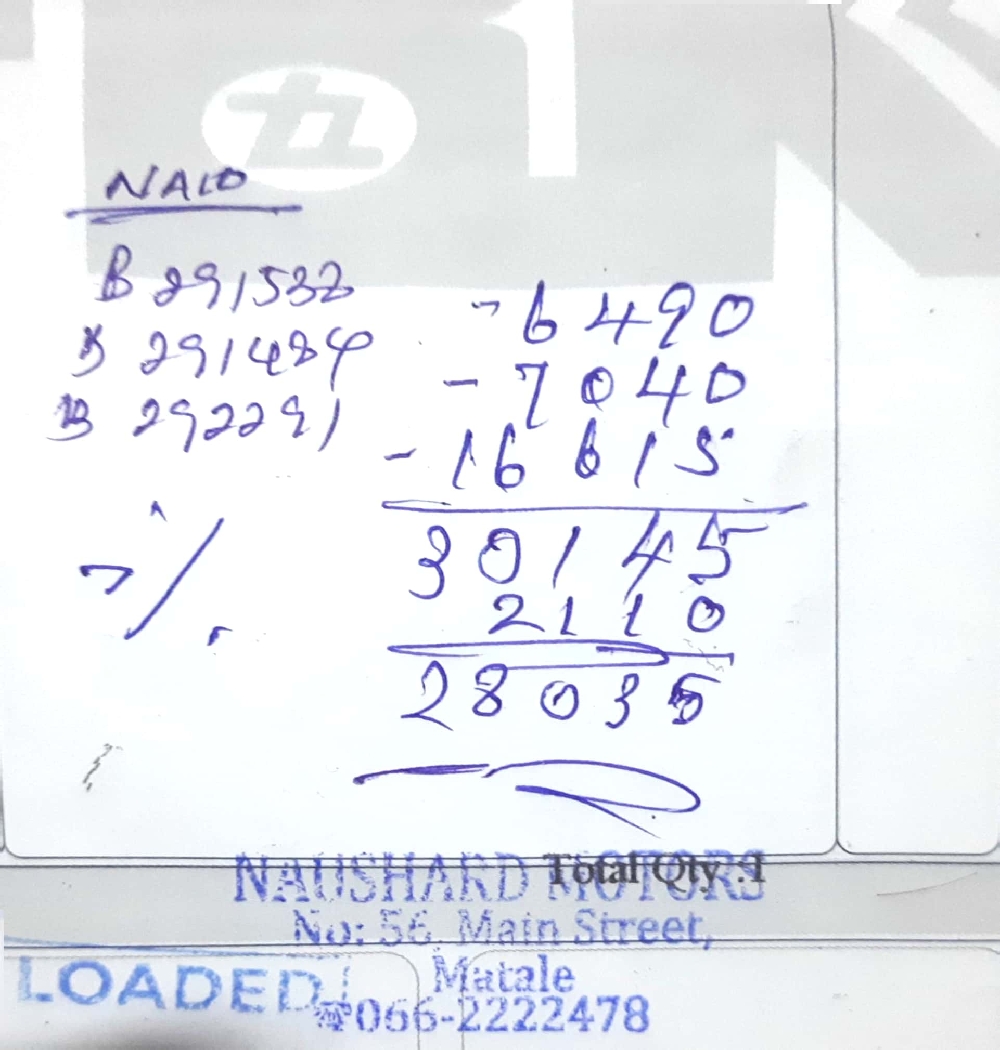 NALO
B 291532 - 6490
B 291484 - 7040
B 292291 - 16615
30145
7%. 2110
28035
NAUSHARD MOTORS
Total Qty :1
No: 56, Main Street,
Matale
LOADED
☎066-2222478